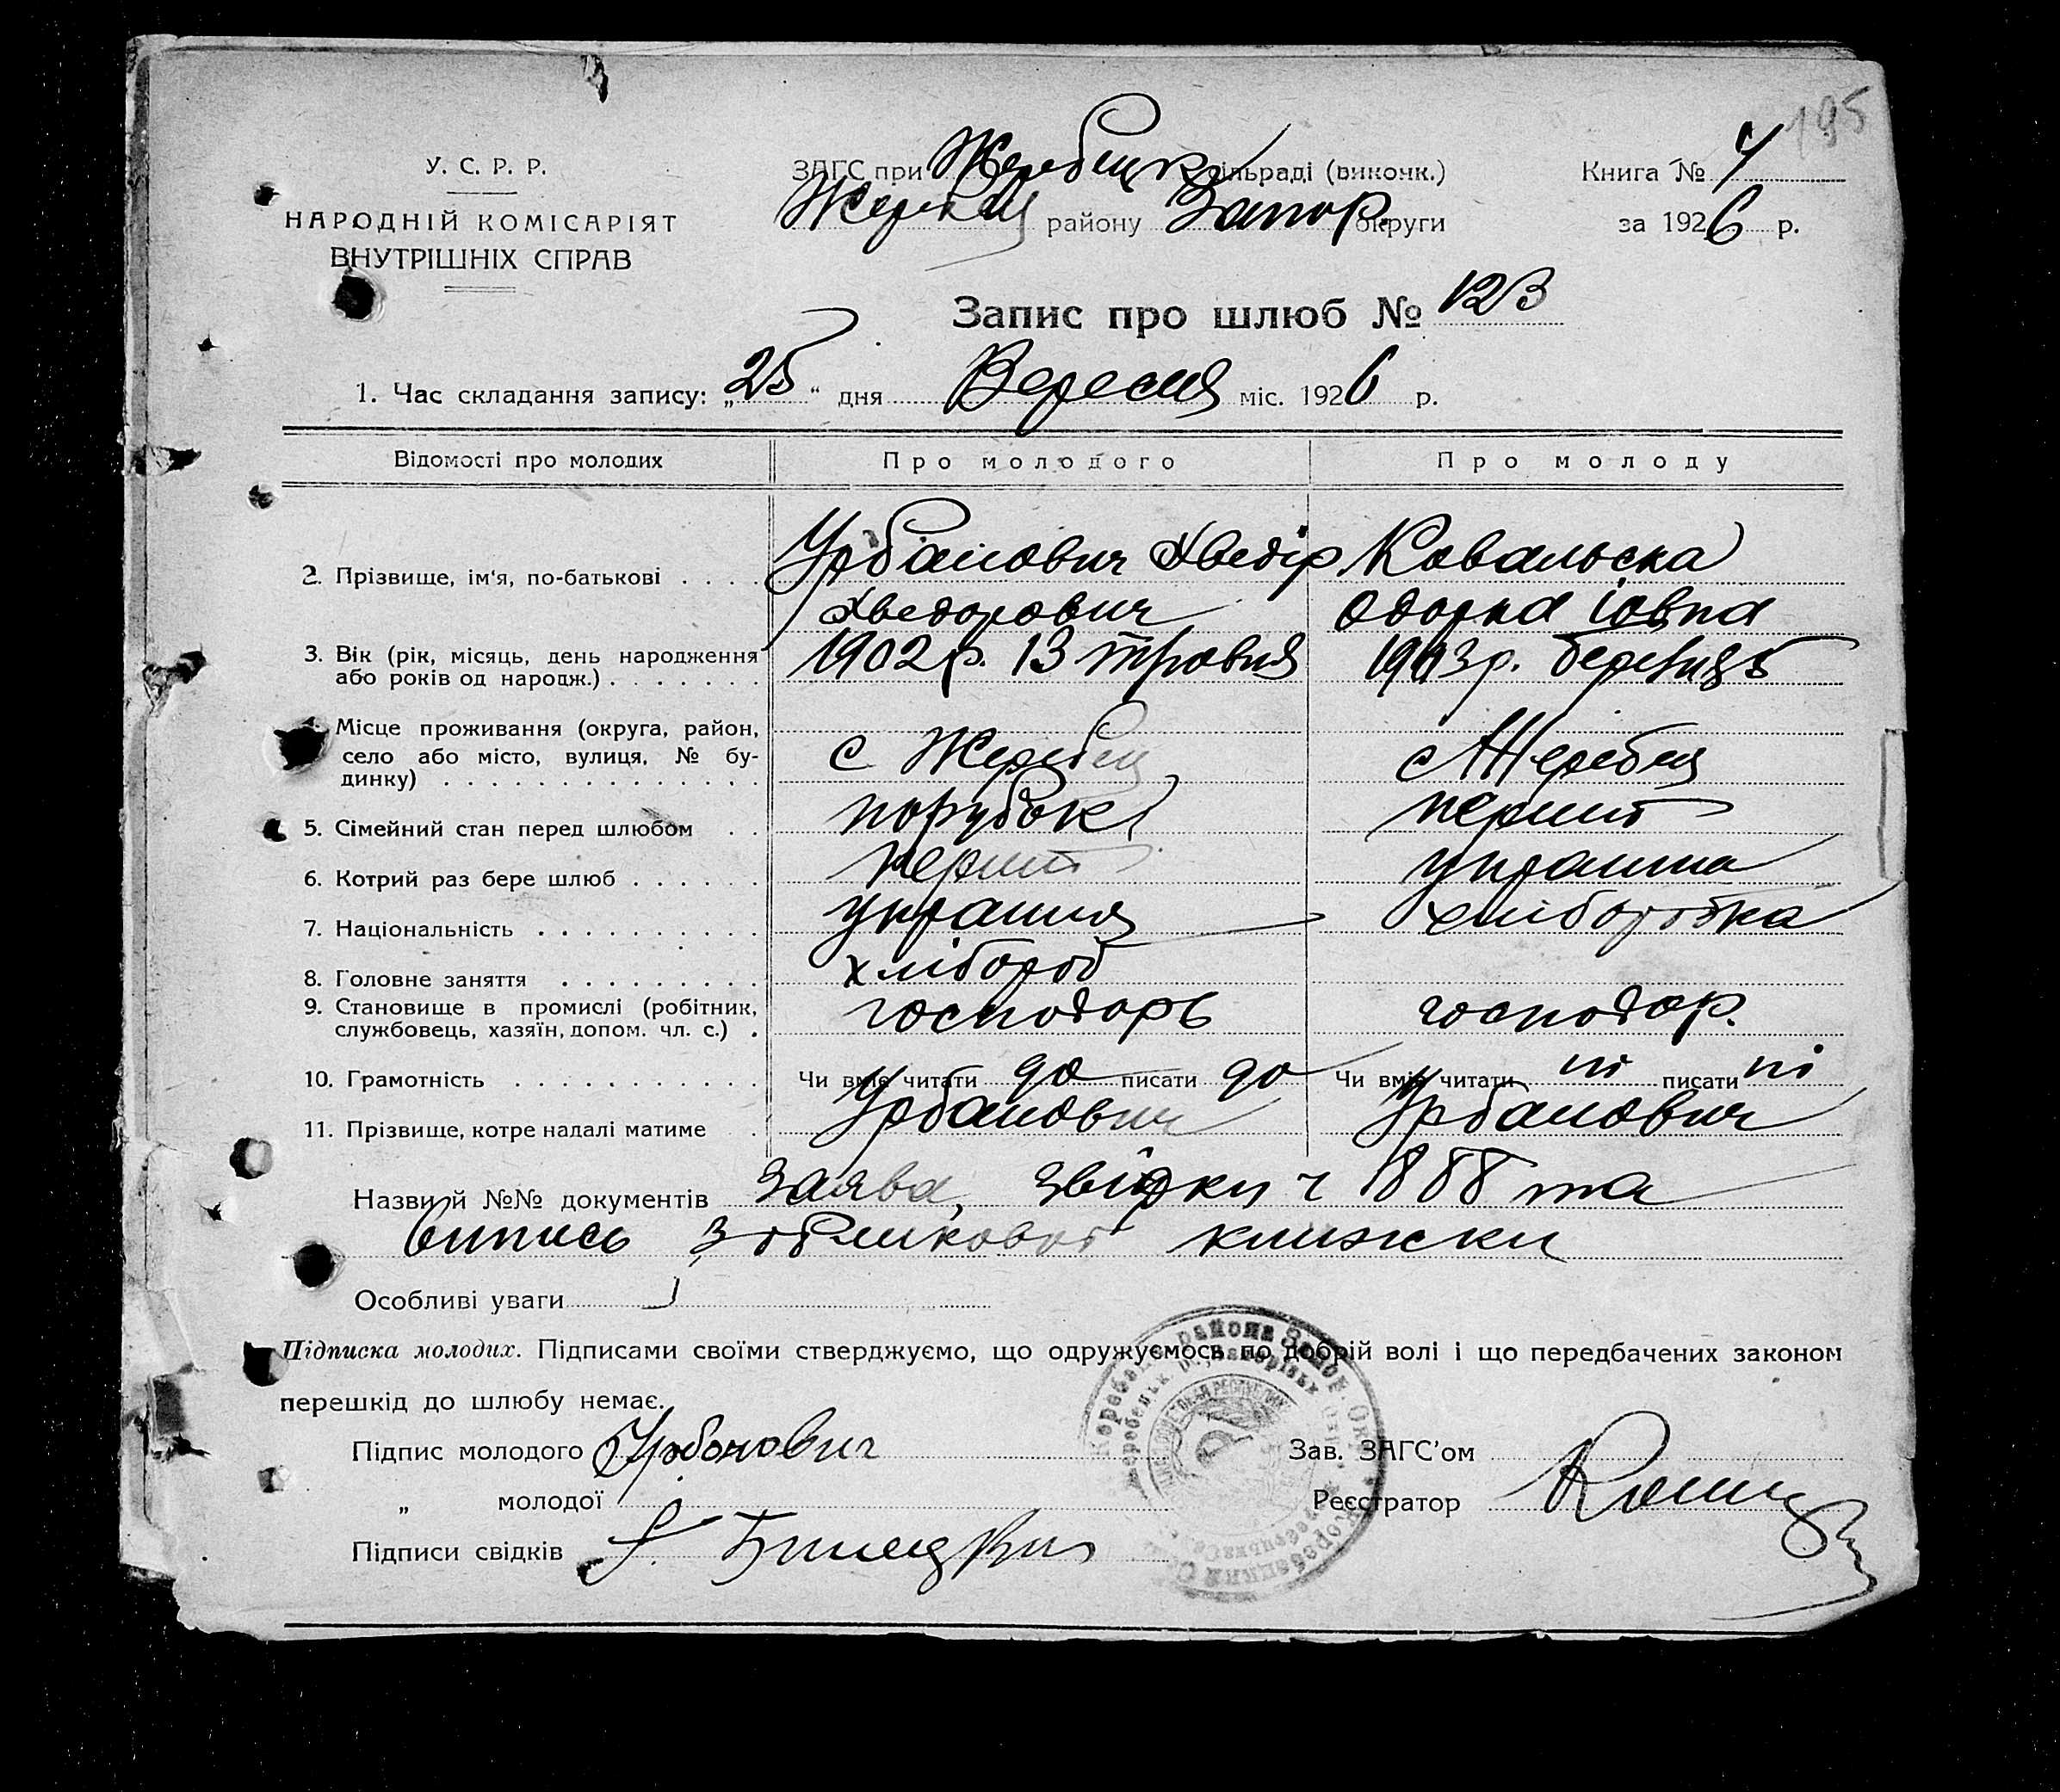 195
У. С. Р. Р.
НАРОДНІЙ КОМІСАРІЯТ
ВНУТРІШНІХ СПРАВ
ЗАГС при Жеребецкі сільраді (виконк.)
Жеребец району Запор. округи
Книга №
за 1926 р.
Запис про шлюб № 123
1. Час складання запису: „25“ дня Вересня міс. 1926 р.
Відомості про молодих Про молодого Про молоду
2. Прізвище, ім'я, по-батькові . . . . Урбанович Хведір Ковальска
Хведорович Одарка Іовна
3. Вік (рік, місяць, день народження 1902 р. 13 травня 1903 р. березиць
або років од народж.) . . . . . . .
4. Місце проживання (округа, район,
село або місто, вулиця, № бу- с Жеребец с Жеребец
динку) . . . . . . . . . . . . . .
5. Сімейний стан перед шлюбом . . парубок перший
6. Котрий раз бере шлюб . . . . . . перший украинка
7. Національність . . . . . . . . . . украинец хліборобка
8. Головне заняття . . . . . . . . . хлібороб
9. Становище в промислі (робітник, господарь господар.
службовець, хазяїн, допом. чл. с.) .
10. Грамотність . . . . . . . . . . . Чи вміє читати да писати да Чи вміє читати ні писати ні
11. Прізвище, котре надалі матиме . Урбанович Урбанович
Назви й №№ документів заява, звідки ч 1888 та
випись з облікової книжки
Особливі уваги
Підписка молодих. Підписами своїми стверджуємо, що одружуємось по добрій волі і що передбачених законом
перешкід до шлюбу немає.
Підпис молодого Урбонович Зав. ЗАГС'ом
„ молодої Реєстратор
Підписи свідків